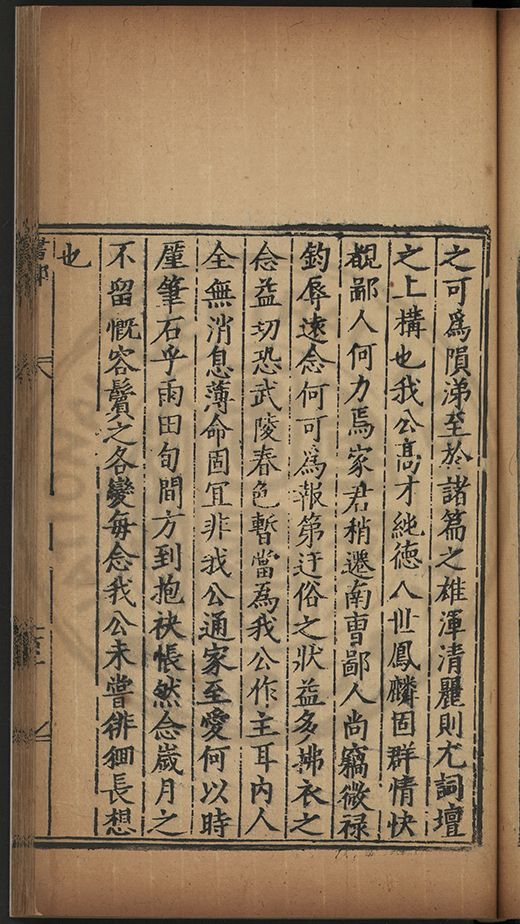 之可爲隕涕至於諸篇之雄渾清麗則尤詞壇
之上構也我公髙才純德人世鳳麟固群情快
覩鄙人何力焉家君稍遷南曹鄙人尚竊微禄
鈞辱遠念何可爲報第迂俗之狀益多拂衣之
念益切恐武陵春色暫當為我公作主耳内人
全無消息薄命固宜非我公通家至愛何以時
厪筆石乎雨田旬間方到抱袂悵然念歲月之
不留慨容鬢之各變每念我公未嘗徘徊長想
也